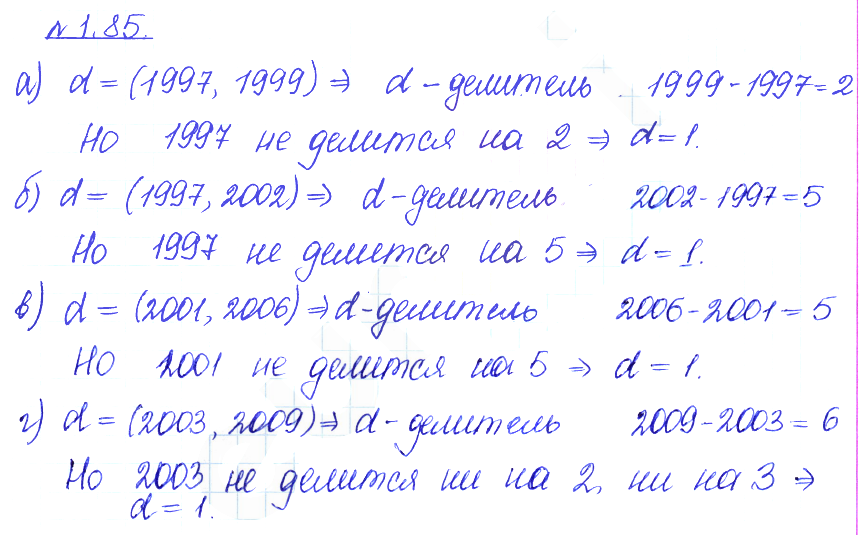 N 1.85.
а) d = (1997, 1999) ⇒ d - делитель 1999-1997=2
Но 1997 не делится на 2 ⇒ d=1.
б) d = (1997, 2002) ⇒ d-делитель 2002-1997=5
Но 1997 не делится на 5 ⇒ d=1.
в) d = (2001, 2006) ⇒ d-делитель 2006-2001=5
Но 2001 не делится на 5 ⇒ d=1.
г) d = (2003, 2009) ⇒ d-делитель 2009-2003=6
Но 2003 не делится ни на 2, ни на 3 ⇒
d=1.